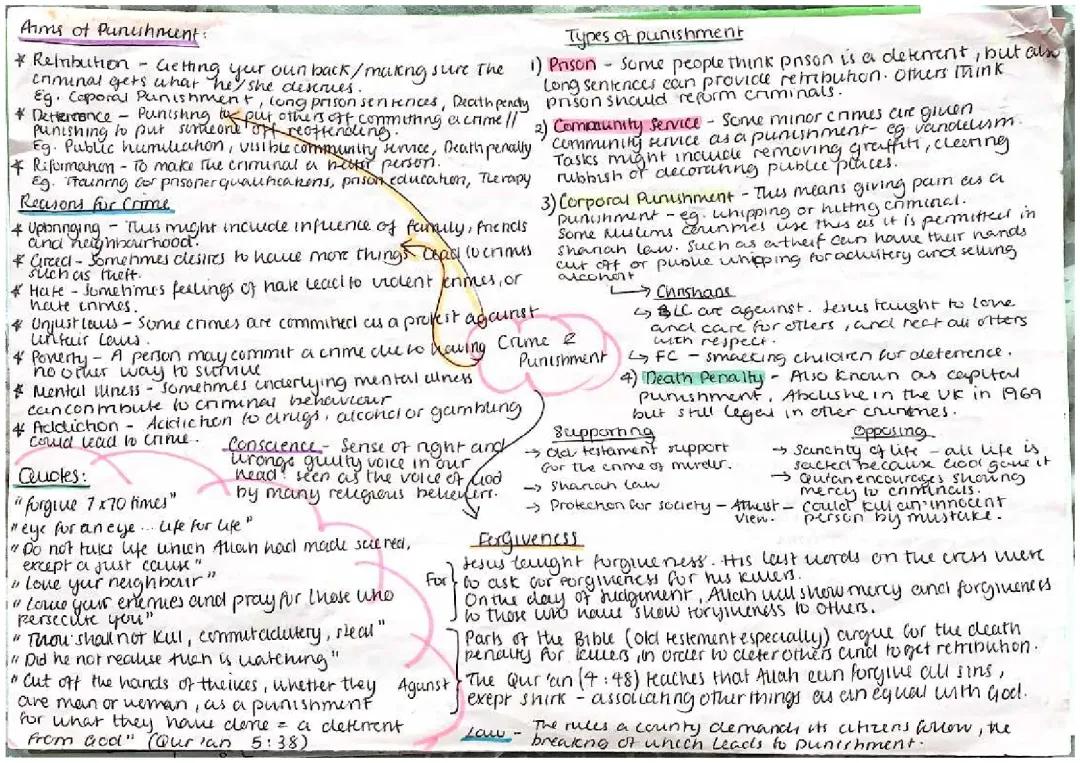 Aims of Punishment:
* Retribution - Getting your own back/making sure the
criminal gets what he/she deserves.
Eg. Coporal Punishment, long prison sentences, Death penalty
* Deterrence - Punishing to put others off committing a crime//
punishing to put someone off reoffending.
Eg. Public humiliation, visible community service, Death penalty
* Riformation - To make the criminal a better person.
Eg. Training for prisoner qualifications, prison education, Therapy
Reasons for Crime
* Upbringing - This might include influence of family, friends
and neighbourhood.
* Greed - Sometimes desires to have more things lead to crimes
such as theft.
* Hate - Sometimes feelings of hate lead to violent crimes, or
hate crimes.
* Unjust laws - Some crimes are committed as a protest against
unfair laws.
* Poverty - A person may commit a crime due to having
no other way to survive
* Mental Illness - sometimes underlying mental illness
can contribute to criminal behaviour
* Addiction - Addiction to drugs, alcohol or gambling
could lead to crime.
Conscience - Sense of right and
wrong, guilty voice in our
head. Seen as the voice of God
by many religious believers.
Quotes:
"forgive 7x70 times"
"eye for an eye ... life for life"
"Do not take life which Allah had made sacred,
except a just cause"
"Love your neighbour"
"Love your enemies and pray for those who
persecute you"
"Thou shall not kill, commit adultery, steal"
"Did he not realise Allah is watching"
"Cut off the hands of theives, whether they
are man or woman, as a punishment
for what they have done = a deterrent
from God" (Qur'an 5:38)
Crime &
Punishment
Types of punishment
1) Prison - Some people think prison is a deterrent, but also
long sentences can provide retribution. Others think
prison should reform criminals.
2) Community Service - Some minor crimes are given
community service as a punishment - eg vandelism.
Tasks might include removing graffiti, clearing
rubbish or decorating public places.
3) Corporal Punishment - This means giving pain as a
punishment - eg. whipping or hitting criminal.
Some Muslims countries use this as it is permitted in
Shariah law. Such as a theif can have their hands
cut off or public whipping for adultery and selling
alcohol
Christians
LC are against. Jesus taught to love
and care for others, and treat all others
with respect.
FC - smacking children for deterrence.
4) Death Penalty - Also known as capital
punishment, Abolishe in the UK in 1969
but still legal in other countries.
Supporting
→ Old testament support
for the crime of murder.
→ Shariah Law
→ Protection for society -
Opposing
→ Sanctity of life - all life is
sacred because God gave it
→ Qu'ran encourages showing
mercy to criminals.
Atheist view. - could kill an innocent
person by mistake.
Forgiveness
For
Jesus taught forgiveness. His last words on the cross were
to ask for forgiveness for his killers.
On the day of Judgment, Allah will show mercy and forgiveness
to those who have show forgiveness to others.
Against
Parts of the Bible (Old testement especially) argue for the death
penalty for killers, in order to deter others and to get retribution.
The Qur'an (4:48) teaches that Allah can forgive all sins,
exept shirk - associating other things as an equal with God.
Law - The rules a county demands its citizens follow, the
breaking of which leads to punishment.